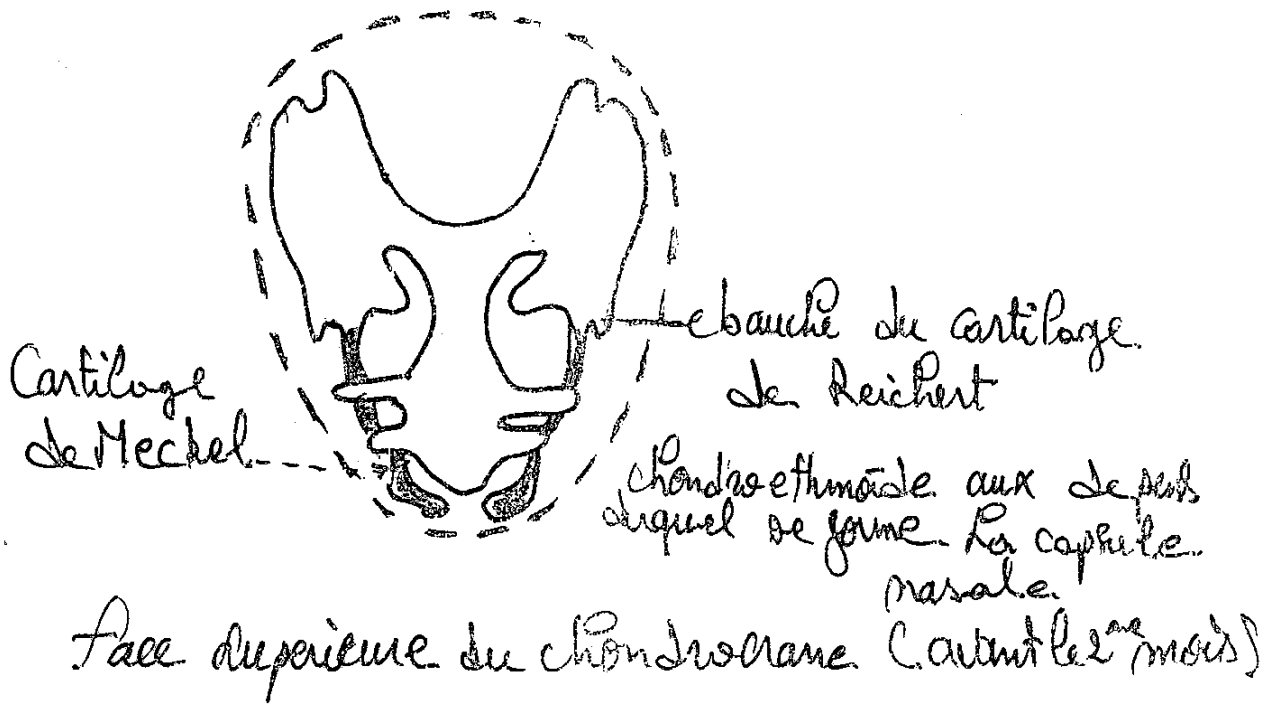 ebauche du cartilage
de Reichert
Cartilage
de Meckel
chondroethmoïde aux depens
duquel se forme la capsule
nasale
face superieure du chondrocrane (avant le 2me mois)